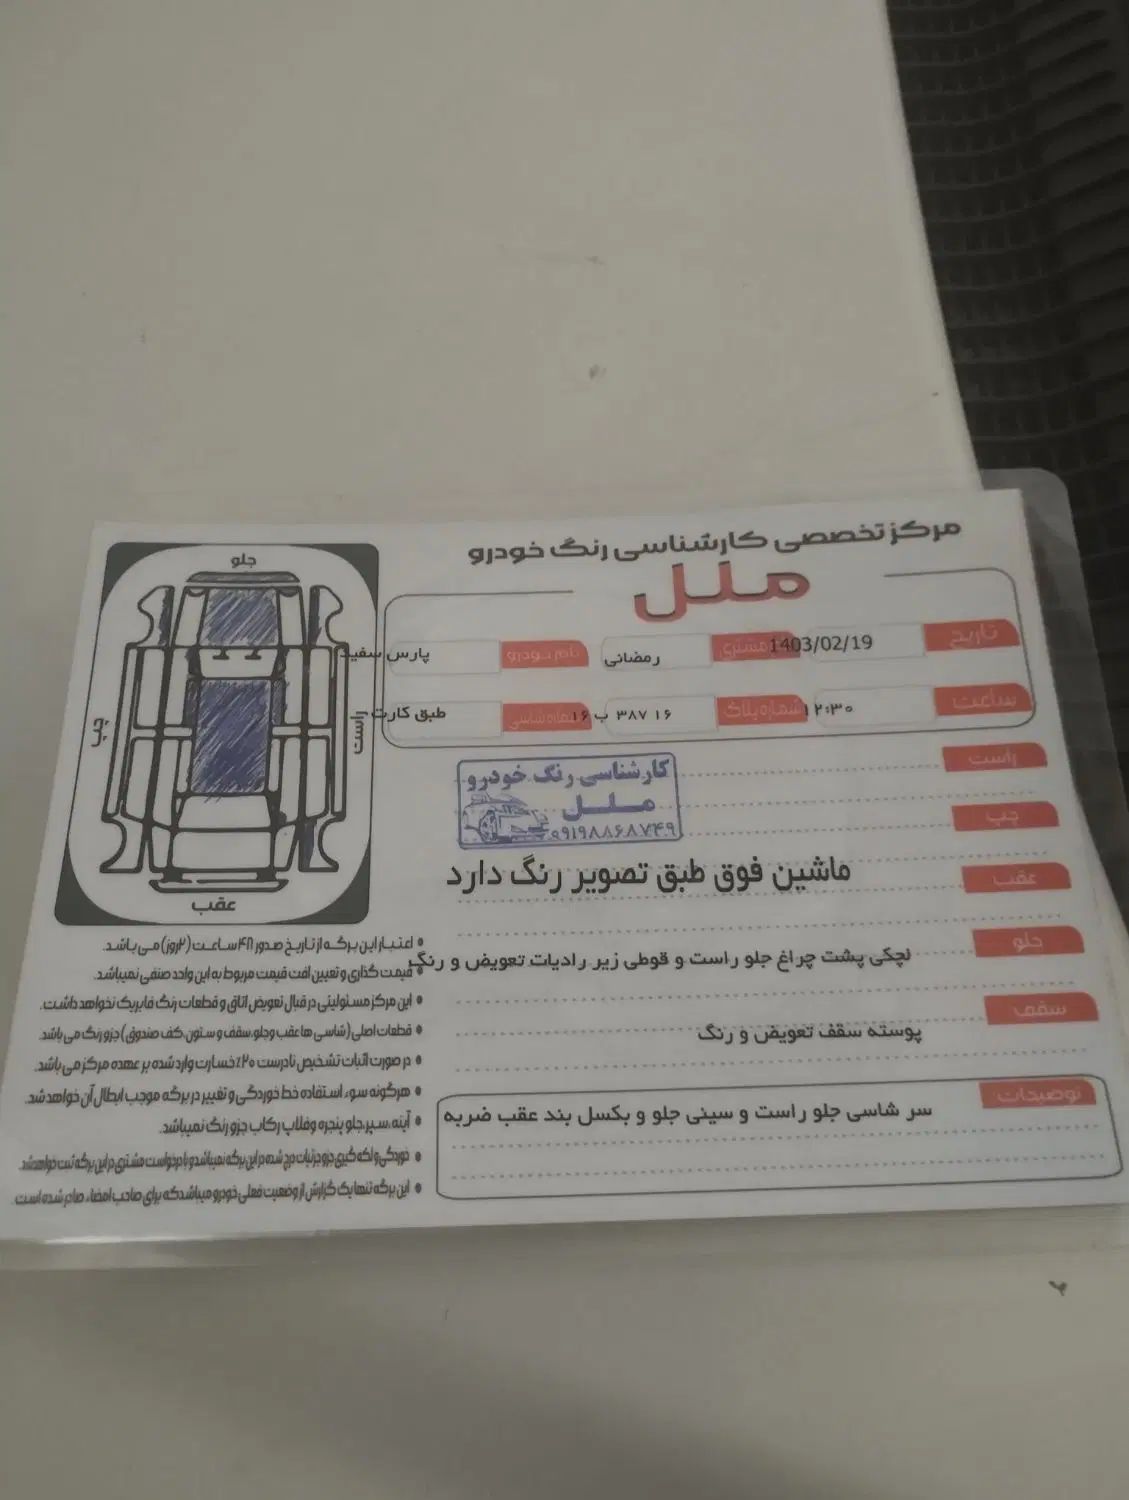 مرکز تخصصی کارشناسی رنگ خودرو
ملل
تاریخ 1403/02/19 مشتری رمضانی نام خودرو پارس سفید
ساعت ۱۲:۳۰ شماره پلاک ۱۶ ۳۸۷ ب ۱۶ شماره شاسی طبق کارت
جلو
چپ
راست
عقب
راست
کارشناسی رنگ خودرو
ملل
۰۹۱۹۸۸۶۸۷۴۹
چپ
ماشین فوق طبق تصویر رنگ دارد
عقب
جلو
لچکی پشت چراغ جلو راست و قوطی زیر رادیات تعویض و رنگ
سقف
پوسته سقف تعویض و رنگ
توضیحات
سر شاسی جلو راست و سینی جلو و بکسل بند عقب ضربه
• اعتبار این برگه از تاریخ صدور ۴۸ ساعت (۲روز) می باشد.
• قیمت گذاری و تعیین افت قیمت مربوط به این واحد صنفی نمیباشد.
• این مرکز مسئولیتی در قبال تعویض اتاق و قطعات رنگ فابریک نخواهد داشت.
• قطعات اصلی (شاسی ها عقب و جلو، سقف و ستون، کف صندوق) جزو رنگ می باشد.
• در صورت اثبات تشخیص نادرست ۲۰٪ خسارت وارد شده بر عهده مرکز می باشد.
• هرگونه سوء استفاده خط خوردگی و تغییر در برگه موجب ابطال آن خواهد شد.
• آینه، سپر، جلو پنجره و قلاب رکاب جزو رنگ نمیباشد.
• خوردگی و لکه گیری جزو جزئیات درج شده در این برگه نمیباشد و با درخواست مشتری در این برگه ثبت خواهد شد.
• این برگه تنها یک گزارش از وضعیت فعلی خودرو میباشد که برای صاحب امضاء صادر شده است.